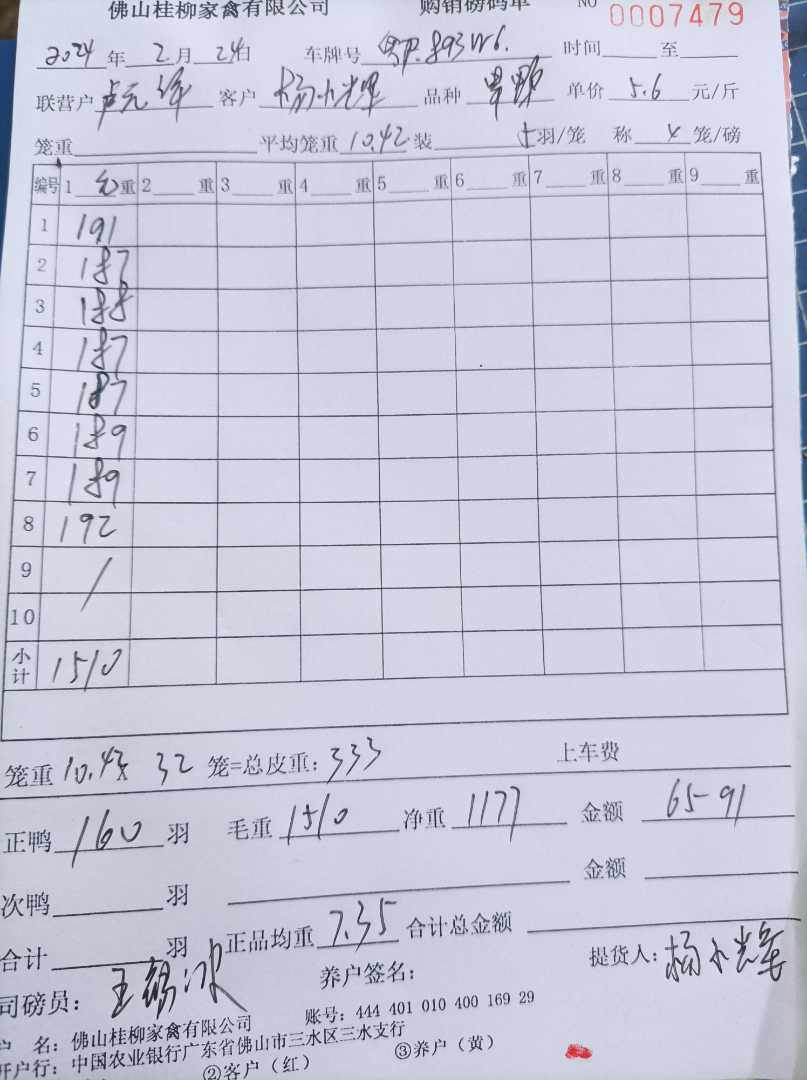 佛山桂柳家禽有限公司 购销磅码单 NO 0007479
2024年2月24日 车牌号 粤P.893W6. 时间 至
联营户 客户 杨小光 品种 单价 5.6 元/斤
笼重 平均笼重 10.42 装 5 羽/笼 称 4 笼/磅
编号 1 毛重 2 重 3 重 4 重 5 重 6 重 7 重 8 重 9 重
1 191
2 187
3 188
4 187
5 187
6 189
7 189
8 192
9 /
10
小计 1510
笼重 10.42 x 32 笼=总皮重: 333 上车费
正鸭 160 羽 毛重 1510 净重 1177 金额 65-91
次鸭 羽 金额
合计 羽 正品均重 7.35 合计总金额
司磅员: 王锡冰 养户签名: 提货人: 杨小光
户 名: 佛山桂柳家禽有限公司 账号: 444 401 010 400 169 29
开户行: 中国农业银行广东省佛山市三水区三水支行
②客户（红） ③养户（黄）